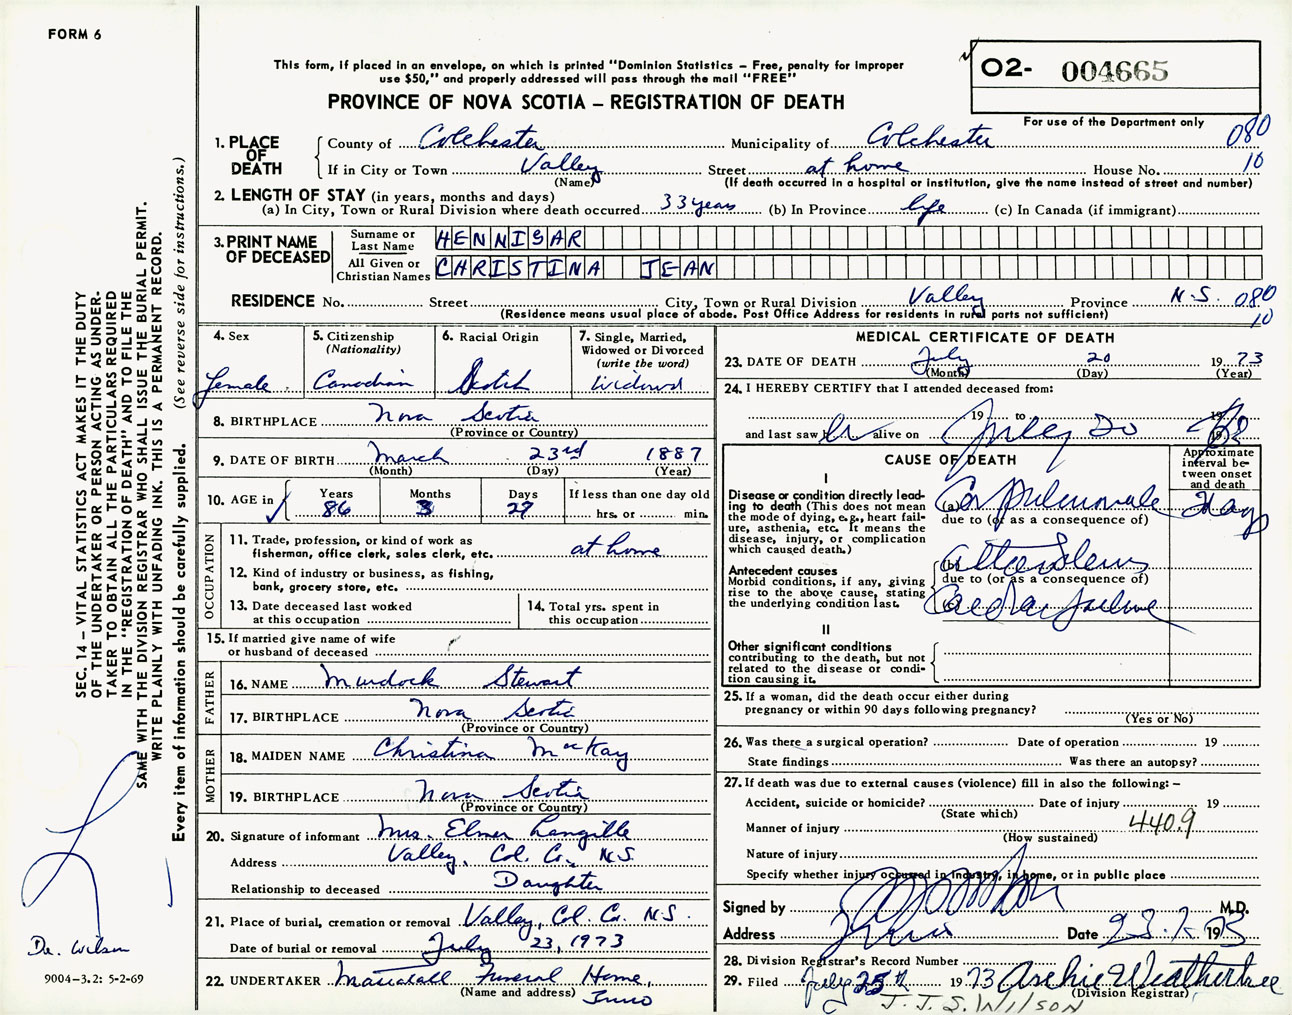 FORM 6
This form, if placed in an envelope, on which is printed "Dominion Statistics – Free, penalty for improper
use $50," and properly addressed will pass through the mail "FREE"
PROVINCE OF NOVA SCOTIA – REGISTRATION OF DEATH
O2- 004665
For use of the Department only
080
10
1. PLACE OF DEATH
County of Colchester Municipality of Colchester
If in City or Town Valley Street at home House No.
(Name) (If death occurred in a hospital or institution, give the name instead of street and number)
2. LENGTH OF STAY (in years, months and days)
(a) In City, Town or Rural Division where death occurred 33 years (b) In Province life (c) In Canada (if immigrant)
3. PRINT NAME OF DECEASED
Surname or Last Name HENNIGAR
All Given or Christian Names CHRISTINA JEAN
RESIDENCE No. Street City, Town or Rural Division Valley Province N.S. 080
(Residence means usual place of abode. Post Office Address for residents in rural parts not sufficient) 10
4. Sex
female
5. Citizenship
(Nationality)
Canadian
6. Racial Origin
Scotch
7. Single, Married,
Widowed or Divorced
(write the word)
Widowed
8. BIRTHPLACE Nova Scotia
(Province or Country)
9. DATE OF BIRTH March 23rd 1887
(Month) (Day) (Year)
10. AGE in Years 86 Months 3 Days 27 If less than one day old
hrs. or min.
OCCUPATION
11. Trade, profession, or kind of work as
fisherman, office clerk, sales clerk, etc. at home
12. Kind of industry or business, as fishing,
bank, grocery store, etc.
13. Date deceased last worked
at this occupation
14. Total yrs. spent in
this occupation
15. If married give name of wife
or husband of deceased
FATHER
16. NAME Murdock Stewart
17. BIRTHPLACE Nova Scotia
(Province or Country)
MOTHER
18. MAIDEN NAME Christina MacKay
19. BIRTHPLACE Nova Scotia
(Province or Country)
20. Signature of informant Mrs. Elmer Langille
Address Valley, Col. Co., N.S.
Relationship to deceased Daughter
21. Place of burial, cremation or removal Valley, Col. Co. N.S.
Date of burial or removal July 23, 1973
22. UNDERTAKER Funeral Home,
(Name and address) Truro
MEDICAL CERTIFICATE OF DEATH
23. DATE OF DEATH July 20 1973
(Month) (Day) (Year)
24. I HEREBY CERTIFY that I attended deceased from:
19 to 19
and last saw alive on July 20 19
CAUSE OF DEATH
Approximate
interval be-
tween onset
and death
I
Disease or condition directly lead-
ing to death (This does not mean
the mode of dying, e.g., heart fail-
ure, asthenia, etc. It means the
disease, injury, or complication
which caused death.)
(a) Cor pulmonale
due to (or as a consequence of)
Antecedent causes
Morbid conditions, if any, giving
rise to the above cause, stating
the underlying condition last.
(b)
due to (or as a consequence of)
(c)
II
Other significant conditions
contributing to the death, but not
related to the disease or condi-
tion causing it.
25. If a woman, did the death occur either during
pregnancy or within 90 days following pregnancy?
(Yes or No)
26. Was there a surgical operation? Date of operation 19
State findings Was there an autopsy?
27. If death was due to external causes (violence) fill in also the following: –
Accident, suicide or homicide? Date of injury 19
(State which)
Manner of injury 440.9
(How sustained)
Nature of injury
Specify whether injury occurred in industry, in home, or in public place
Signed by M.D.
Address Date 23. 7. 1973
28. Division Registrar's Record Number
29. Filed July 25th 1973 Archie Weatherbee
(Division Registrar)
J. J. S. WILSON
SEC. 14 – VITAL STATISTICS ACT MAKES IT THE DUTY
OF THE UNDERTAKER OR PERSON ACTING AS UNDER-
TAKER TO OBTAIN ALL THE PARTICULARS REQUIRED
IN THE "REGISTRATION OF DEATH" AND TO FILE THE
SAME WITH THE DIVISION REGISTRAR WHO SHALL ISSUE THE BURIAL PERMIT.
WRITE PLAINLY WITH UNFADING INK. THIS IS A PERMANENT RECORD.
Every item of information should be carefully supplied. (See reverse side for instructions.)
Dr. Wilson
9004-3.2: 5-2-69